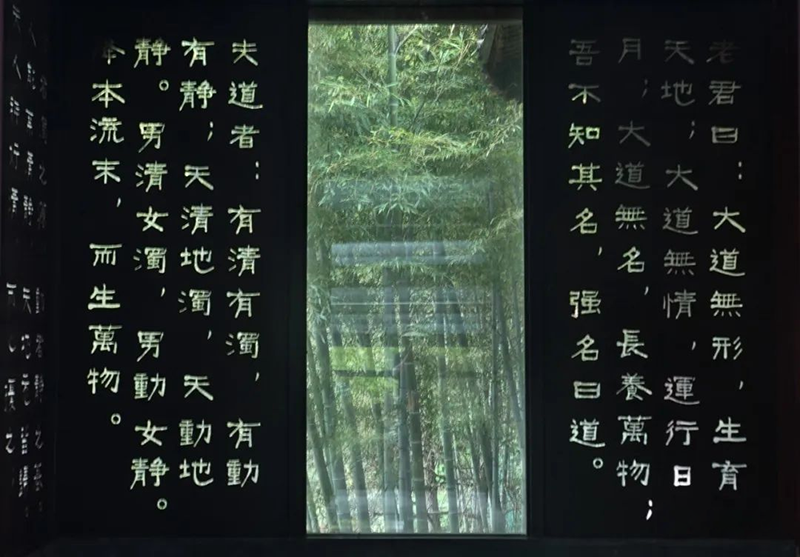 老君曰：大道無形，生育
天地；大道無情，運行日
月；大道無名，長養萬物；
吾不知其名，强名曰道。
夫道者：有清有濁，有動
有静；天清地濁，天動地
静。男清女濁，男動女静。
降本流末，而生萬物。